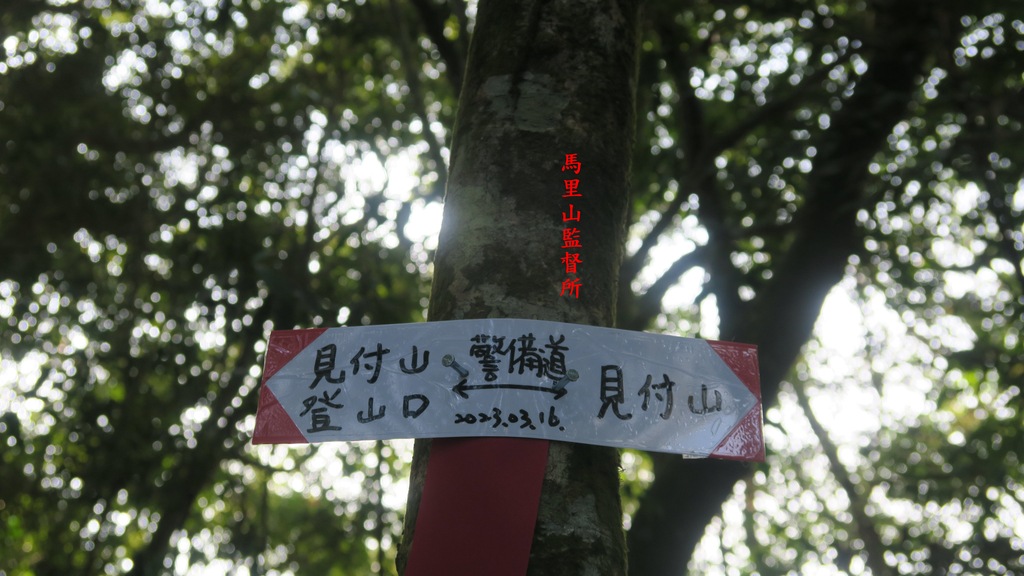 馬里山監督所
見付山
登山口
警備道
2023.03.16.
見付山